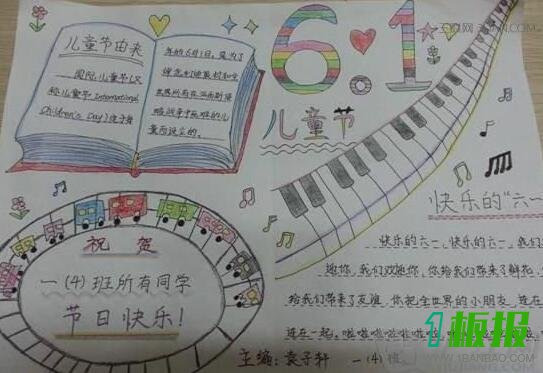 儿童节由来
国际儿童节(又
称儿童节International
Children's Day)定于每
年的6月1日。是为了
悼念利迪策村和全
世界所有在法西斯侵
略战争中死难的儿
童而设立的。
6.1
儿童节
祝 贺
一(4)班所有同学
节日快乐!
快乐的"六一
快乐的六一,快乐的六一,我们
迎你,我们欢迎你,你给我们带来了鲜花
给我们带来了友谊,你把全世界的小朋友,连在
连在一起,啦啦啦啦啦啦啦
主编:袁子轩 一(4)班
1板报
WWW.1BANBAO.COM